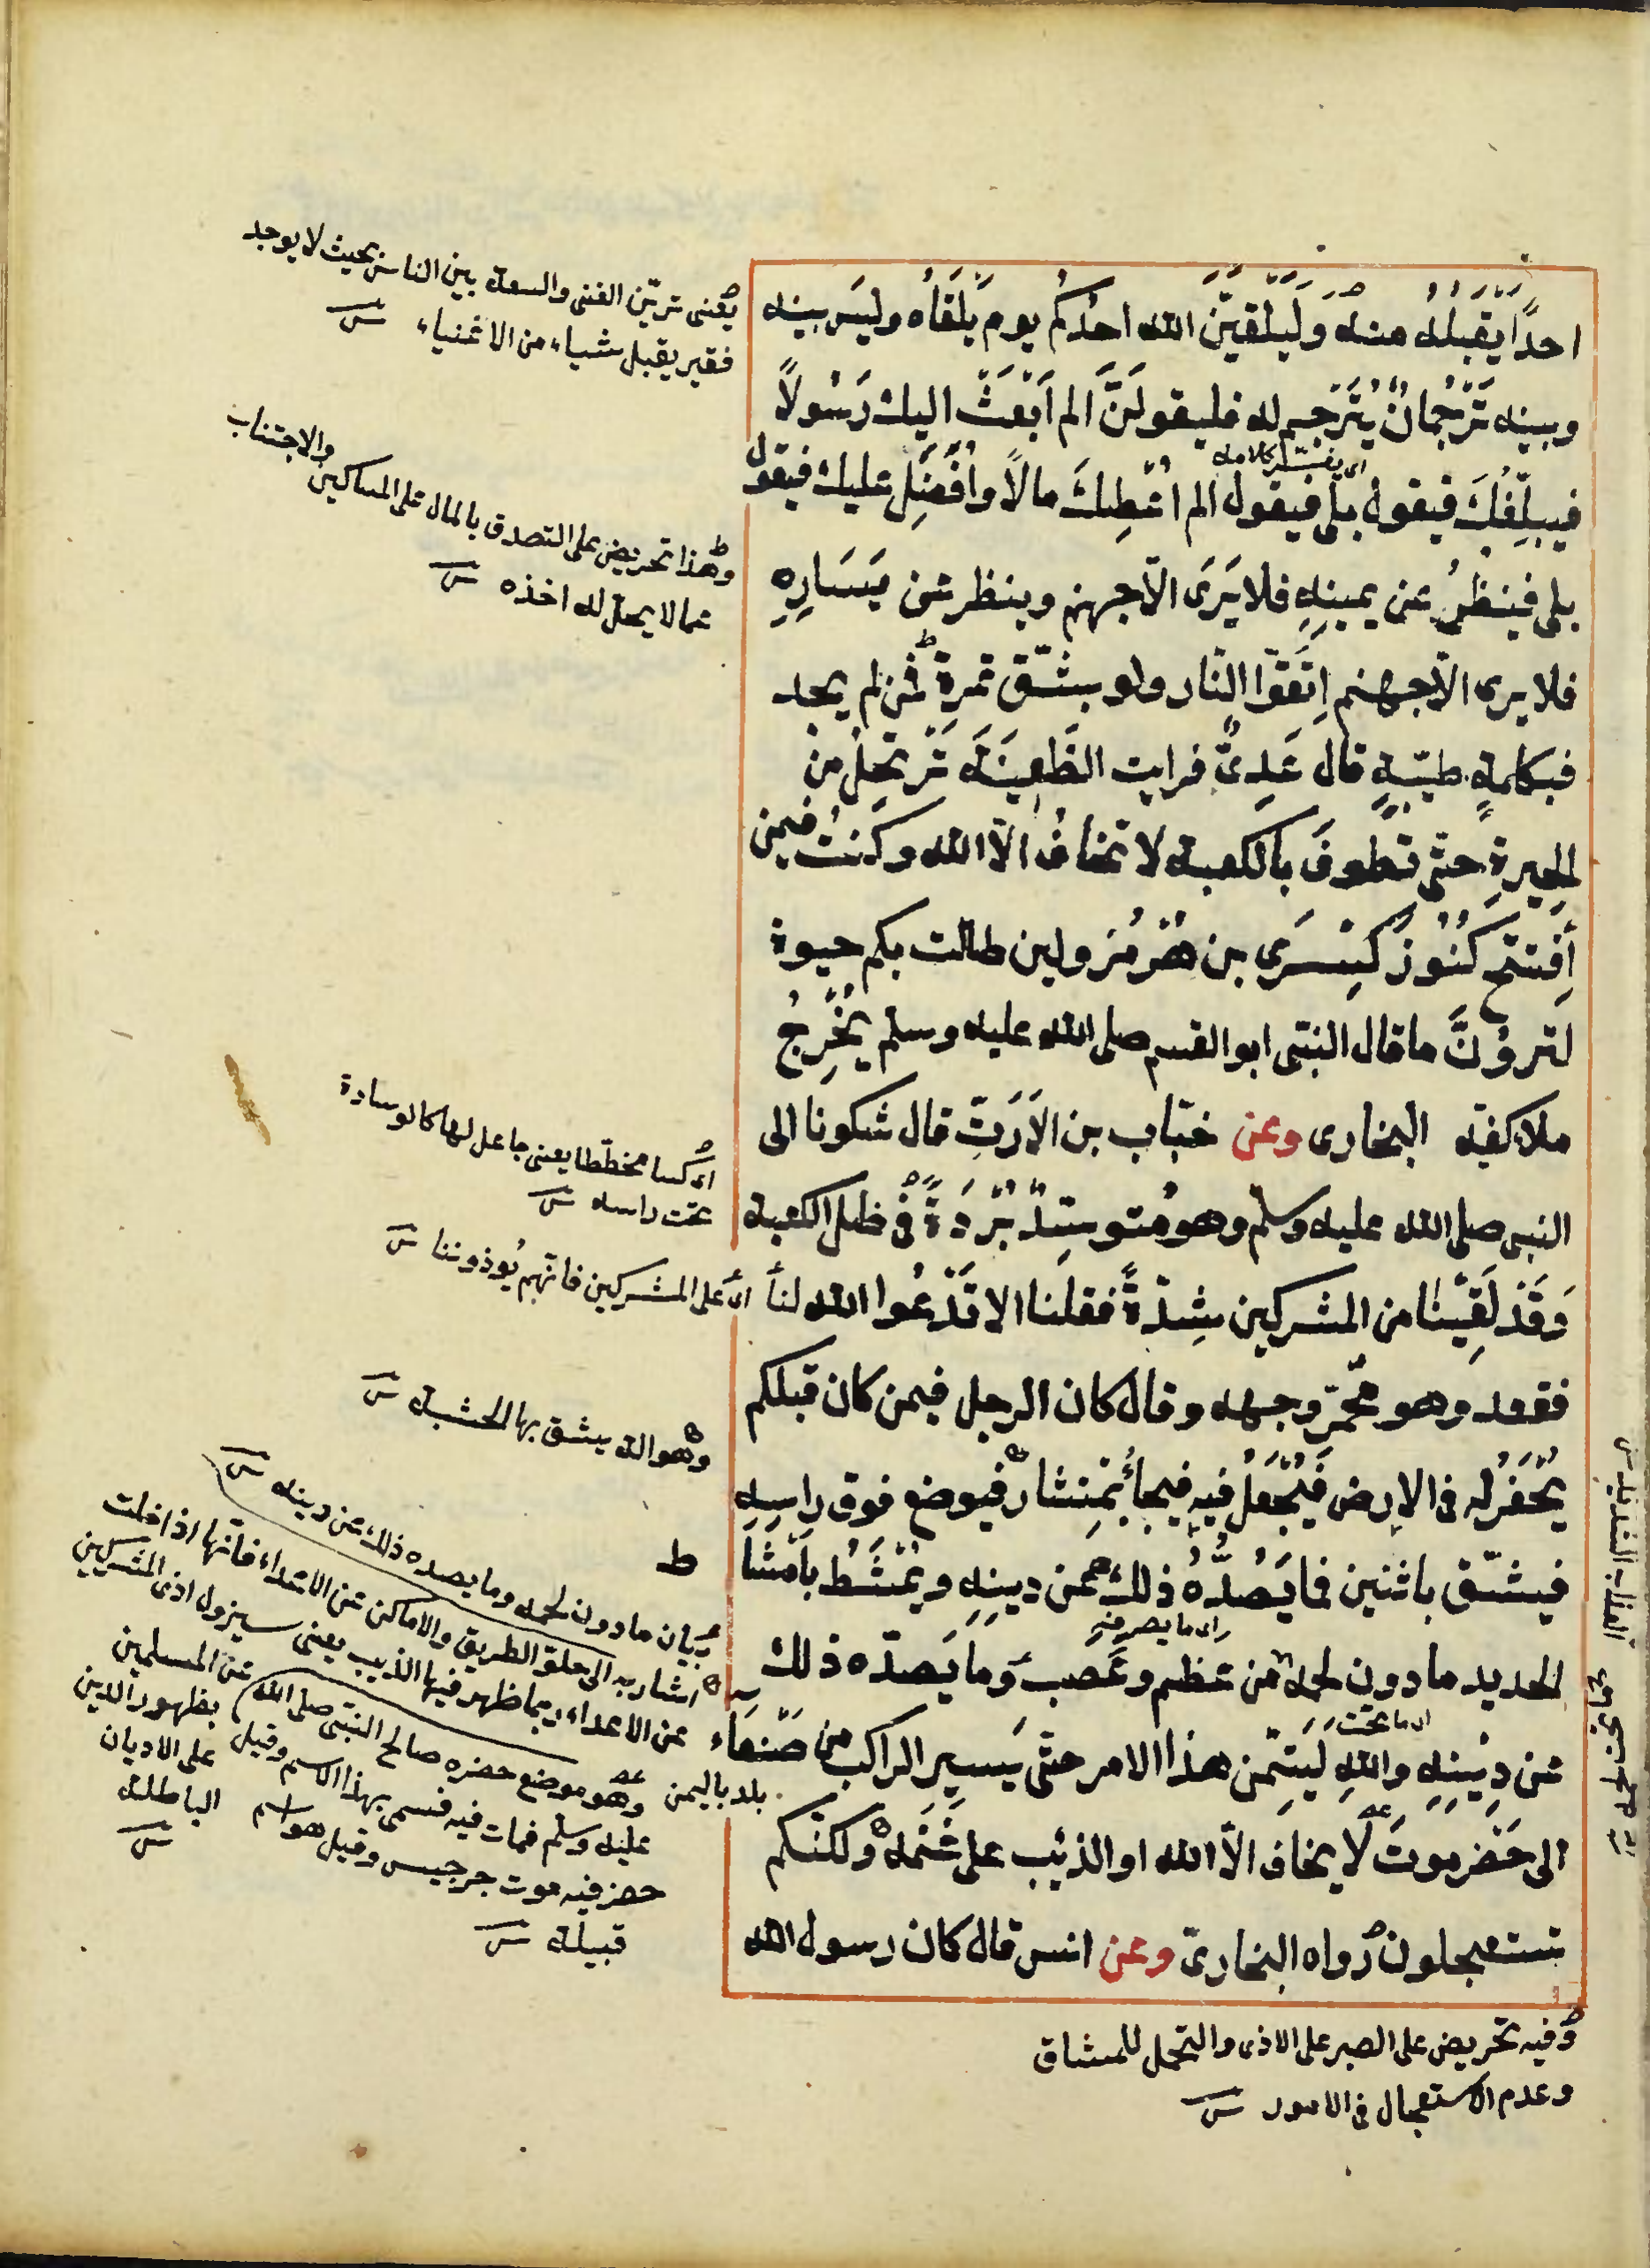 احدًا يَقبَلُهُ منه وَلَيَلقَيَنَّ الله احدُكُم يوم يَلقَاهُ وليسَ بينه
وبينه تَرْجُمانٌ يُتَرْجِم له فليقولَنَّ الم اَبْعَثْ اليك رَسُولاً
اى يفسّر كلامه
فيبلّغُكَ فيقول بلى فيقول الم اُعْطِكَ مالاً واُفْضِل عليك فيقول
بلى فينظرُ عن يمينِهِ فلا يَرَى الّا جهنم وينظر عَن يَسَارِهِ
فلا يرى الّا جهنم اِتَّقُوا النّار ولو بشقّ تمرةٍ فمن لم يجد
فبكلمةٍ طيّبةٍ قال عَدِىٌّ فرايت الظَّعِينَةَ تَرْتحِلُ من
الحِيرةِ حتى تطوفَ بالكعبة لا تخافُ الّا الله وكنتُ فيمن
اِفتتح كُنُوزَ كِسْرَى بن هُرْمُزَ ولين طالت بكم حيوة
لترَوُنَّ ما قال النبىّ ابو القسم صلى الله عليه وسلم يُخْرِجُ
ملأ كفيه البخارى وعن خبّاب بن الاَرَتِّ قال شكونا الى
النبى صلى الله عليه وسلم وهو مُتوسّدٌ بُرْدَةً فى ظل الكعبة
وَقَدْ لَقِيْنَا من المشركين شِدّةً فقلنا الا تَدْعُوا الله لنا
فقعد وهو محمرّ وجهه وقال كان الرجل فيمن كان قبلكم
يُحْفَرُ له فى الارض فَيُجْعَلُ فيه فيجاُ بمِنشار فيوضع فوق راسِهِ
فيشقّ باثنين فما يَصُدُّهُ ذلك عن دينِهِ ويُمْشَطُ باَمْشَاط
الحديد ما دون لحمه من عظم وعَصب وَما يَصدّه ذلك
اى ما يصرفه
اى ما تحت
عن دِيْنِهِ واللهِ لَيَتِمَّن هذا الامر حتّى يَسير الراكب من صَنْعَاء
الى حَضرموتَ لا يخاف الّا الله او الذئب على غَنَمه ولكنّكم
تستعجلون رواه البخارىّ وعن انس قال كان رسول الله
يعنى تريّن الغنى والسعة بين الناس بحيث لا يوجد
فقير يقبل شياء من الاغنياء
وهذا تحريض على التصدق بالمال على المساكين والاجتناب
عما لا يحل له اخذه
اى كسا مخططا يعنى جاعل لها كالوسادة
تحت راسه
اى على المشركين فانهم يُوذوننا
وهو الة يشق بها الخشبة
بيان ما دون لحمه وما يصده ذلك عن دينه
اشار به الى خلو الطريق والاماكن عن الاعداء فانّها اذا خلت
عن الاعداء ربما ظهر فيها الذيب يعنى سيزول اذى المشركين
عن المسلمين
بظهور الدين
على الاديان
الباطلة
بلد باليمن
وهو موضع حضره صالح النبىّ صلى الله
عليه وسلم فمات فيه فسمى بهذا الاسم وقيل
حضر فيه موت جرجيس وقيل هو اسم
قبيلة
وفيه تحريض على الصبر على الاذى والتحمل للمشاق
وعدم الاستعجال فى الامور